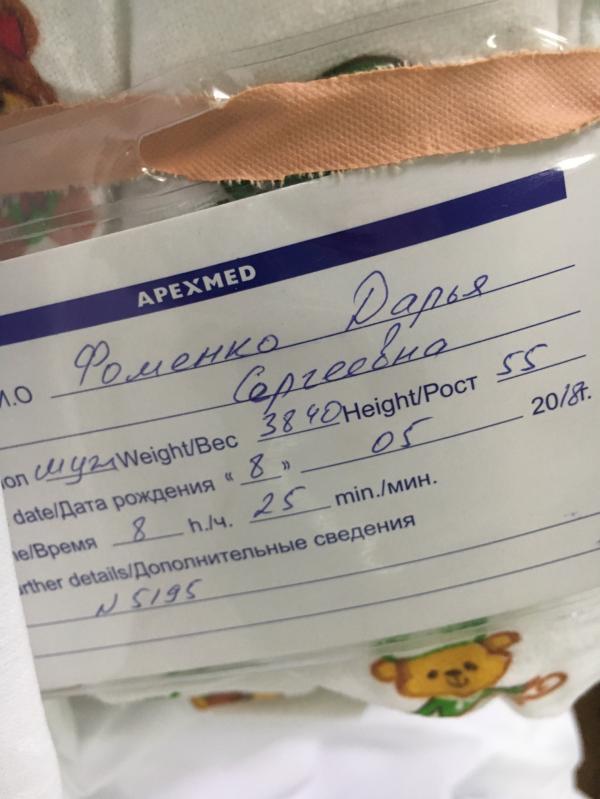 APEXMED
И.О Фоменко Дарья
Сергеевна
ол муж Weight/Вес 3840 Height/Рост 55
date/Дата рождения « 8 » 05 2018г.
ne/Время 8 h./ч. 25 min./мин.
urther details/Дополнительные сведения
N 5195